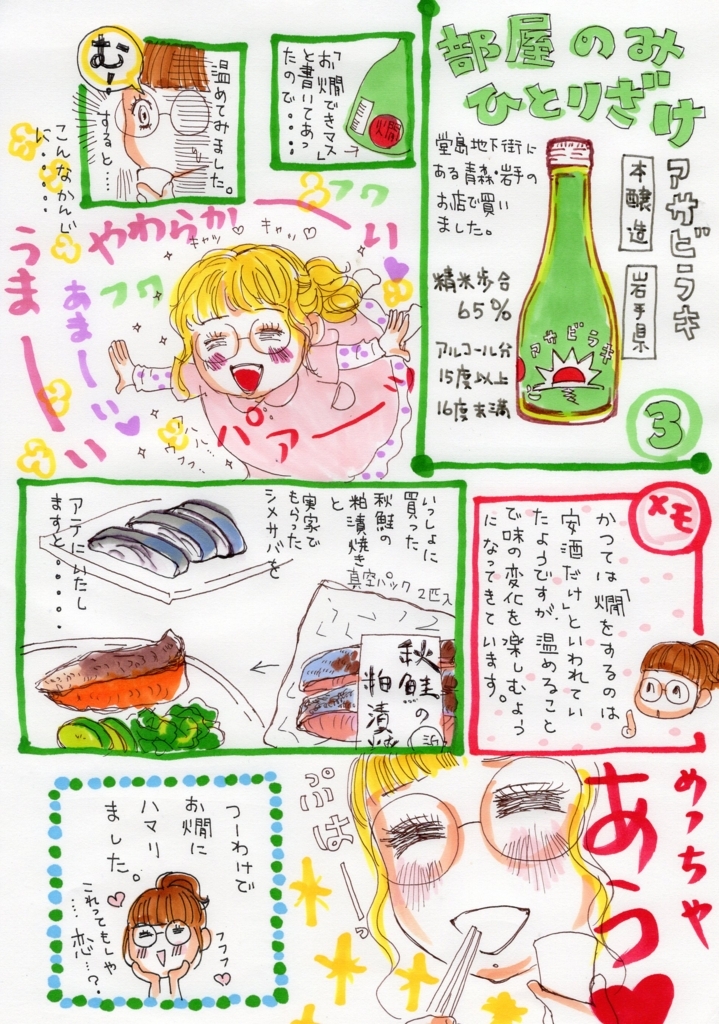 部屋のみ
ひとりざけ
アサビラキ
本醸造
岩手県
堂島地下街に
ある青森・岩手の
お店で買い
ました。
精米歩合
65%
アルコール分
15度以上
16度未満
アサビラキ
3
「お燗できマス」
と書いてあっ
たので・・・・
燗
温めてみました。
む!
すると・・・・・
こんなかんじ
に・・・・・
フワ
フワ
やわらか
ーい
キャッ
キャッ
あまーい
うまーい
パァーッ
ハハ・・
ウフフ・・
メモ
かつては「燗をするのは
安酒だけ」といわれてい
たようですが、温めること
で味の変化を楽しむよう
になってきています。
いっしょに
買った
秋鮭の
粕漬焼き
と
実家で
もらった
シメサバを
アテにいたし
ますと・・・・・
真空パック 2匹入
秋鮭の
粕漬
めっちゃ
あう
ぷはーっ
つーわけで
お燗に
ハマリ
ました。
フフフ
これってもしや
・・・・恋・・・?